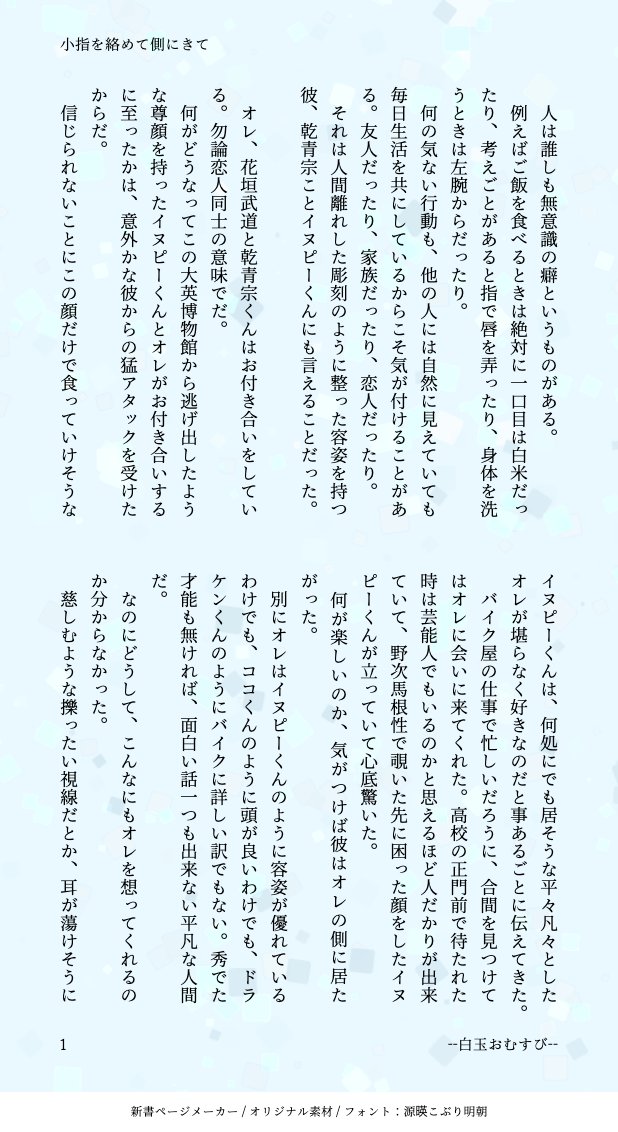 小指を絡めて側にきて
人は誰しも無意識の癖というものがある。
例えばご飯を食べるときは絶対に一口目は白米だっ
たり、考えごとがあると指で唇を弄ったり、身体を洗
うときは左腕からだったり。
何の気ない行動も、他の人には自然に見えていても
毎日生活を共にしているからこそ気が付けることがあ
る。友人だったり、家族だったり、恋人だったり。
それは人間離れした彫刻のように整った容姿を持つ
彼、乾青宗ことイヌピーくんにも言えることだった。
オレ、花垣武道と乾青宗くんはお付き合いをしてい
る。勿論恋人同士の意味でだ。
何がどうなってこの大英博物館から逃げ出したよう
な尊顔を持ったイヌピーくんとオレがお付き合いする
に至ったかは、意外かな彼からの猛アタックを受けた
からだ。
信じられないことにこの顔だけで食っていけそうな
イヌピーくんは、何処にでも居そうな平々凡々とした
オレが堪らなく好きなのだと事あるごとに伝えてきた。
バイク屋の仕事で忙しいだろうに、合間を見つけて
はオレに会いに来てくれた。高校の正門前で待たれた
時は芸能人でもいるのかと思えるほど人だかりが出来
ていて、野次馬根性で覗いた先に困った顔をしたイヌ
ピーくんが立っていて心底驚いた。
何が楽しいのか、気がつけば彼はオレの側に居た
がった。
別にオレはイヌピーくんのように容姿が優れている
わけでも、ココくんのように頭が良いわけでも、ドラ
ケンくんのようにバイクに詳しい訳でもない。秀でた
才能も無ければ、面白い話一つも出来ない平凡な人間
だ。
なのにどうして、こんなにもオレを想ってくれるの
か分からなかった。
慈しむような擽ったい視線だとか、耳が蕩けそうに
1
--白玉おむすび--
新書ページメーカー / オリジナル素材 / フォント：源暎こぶり明朝